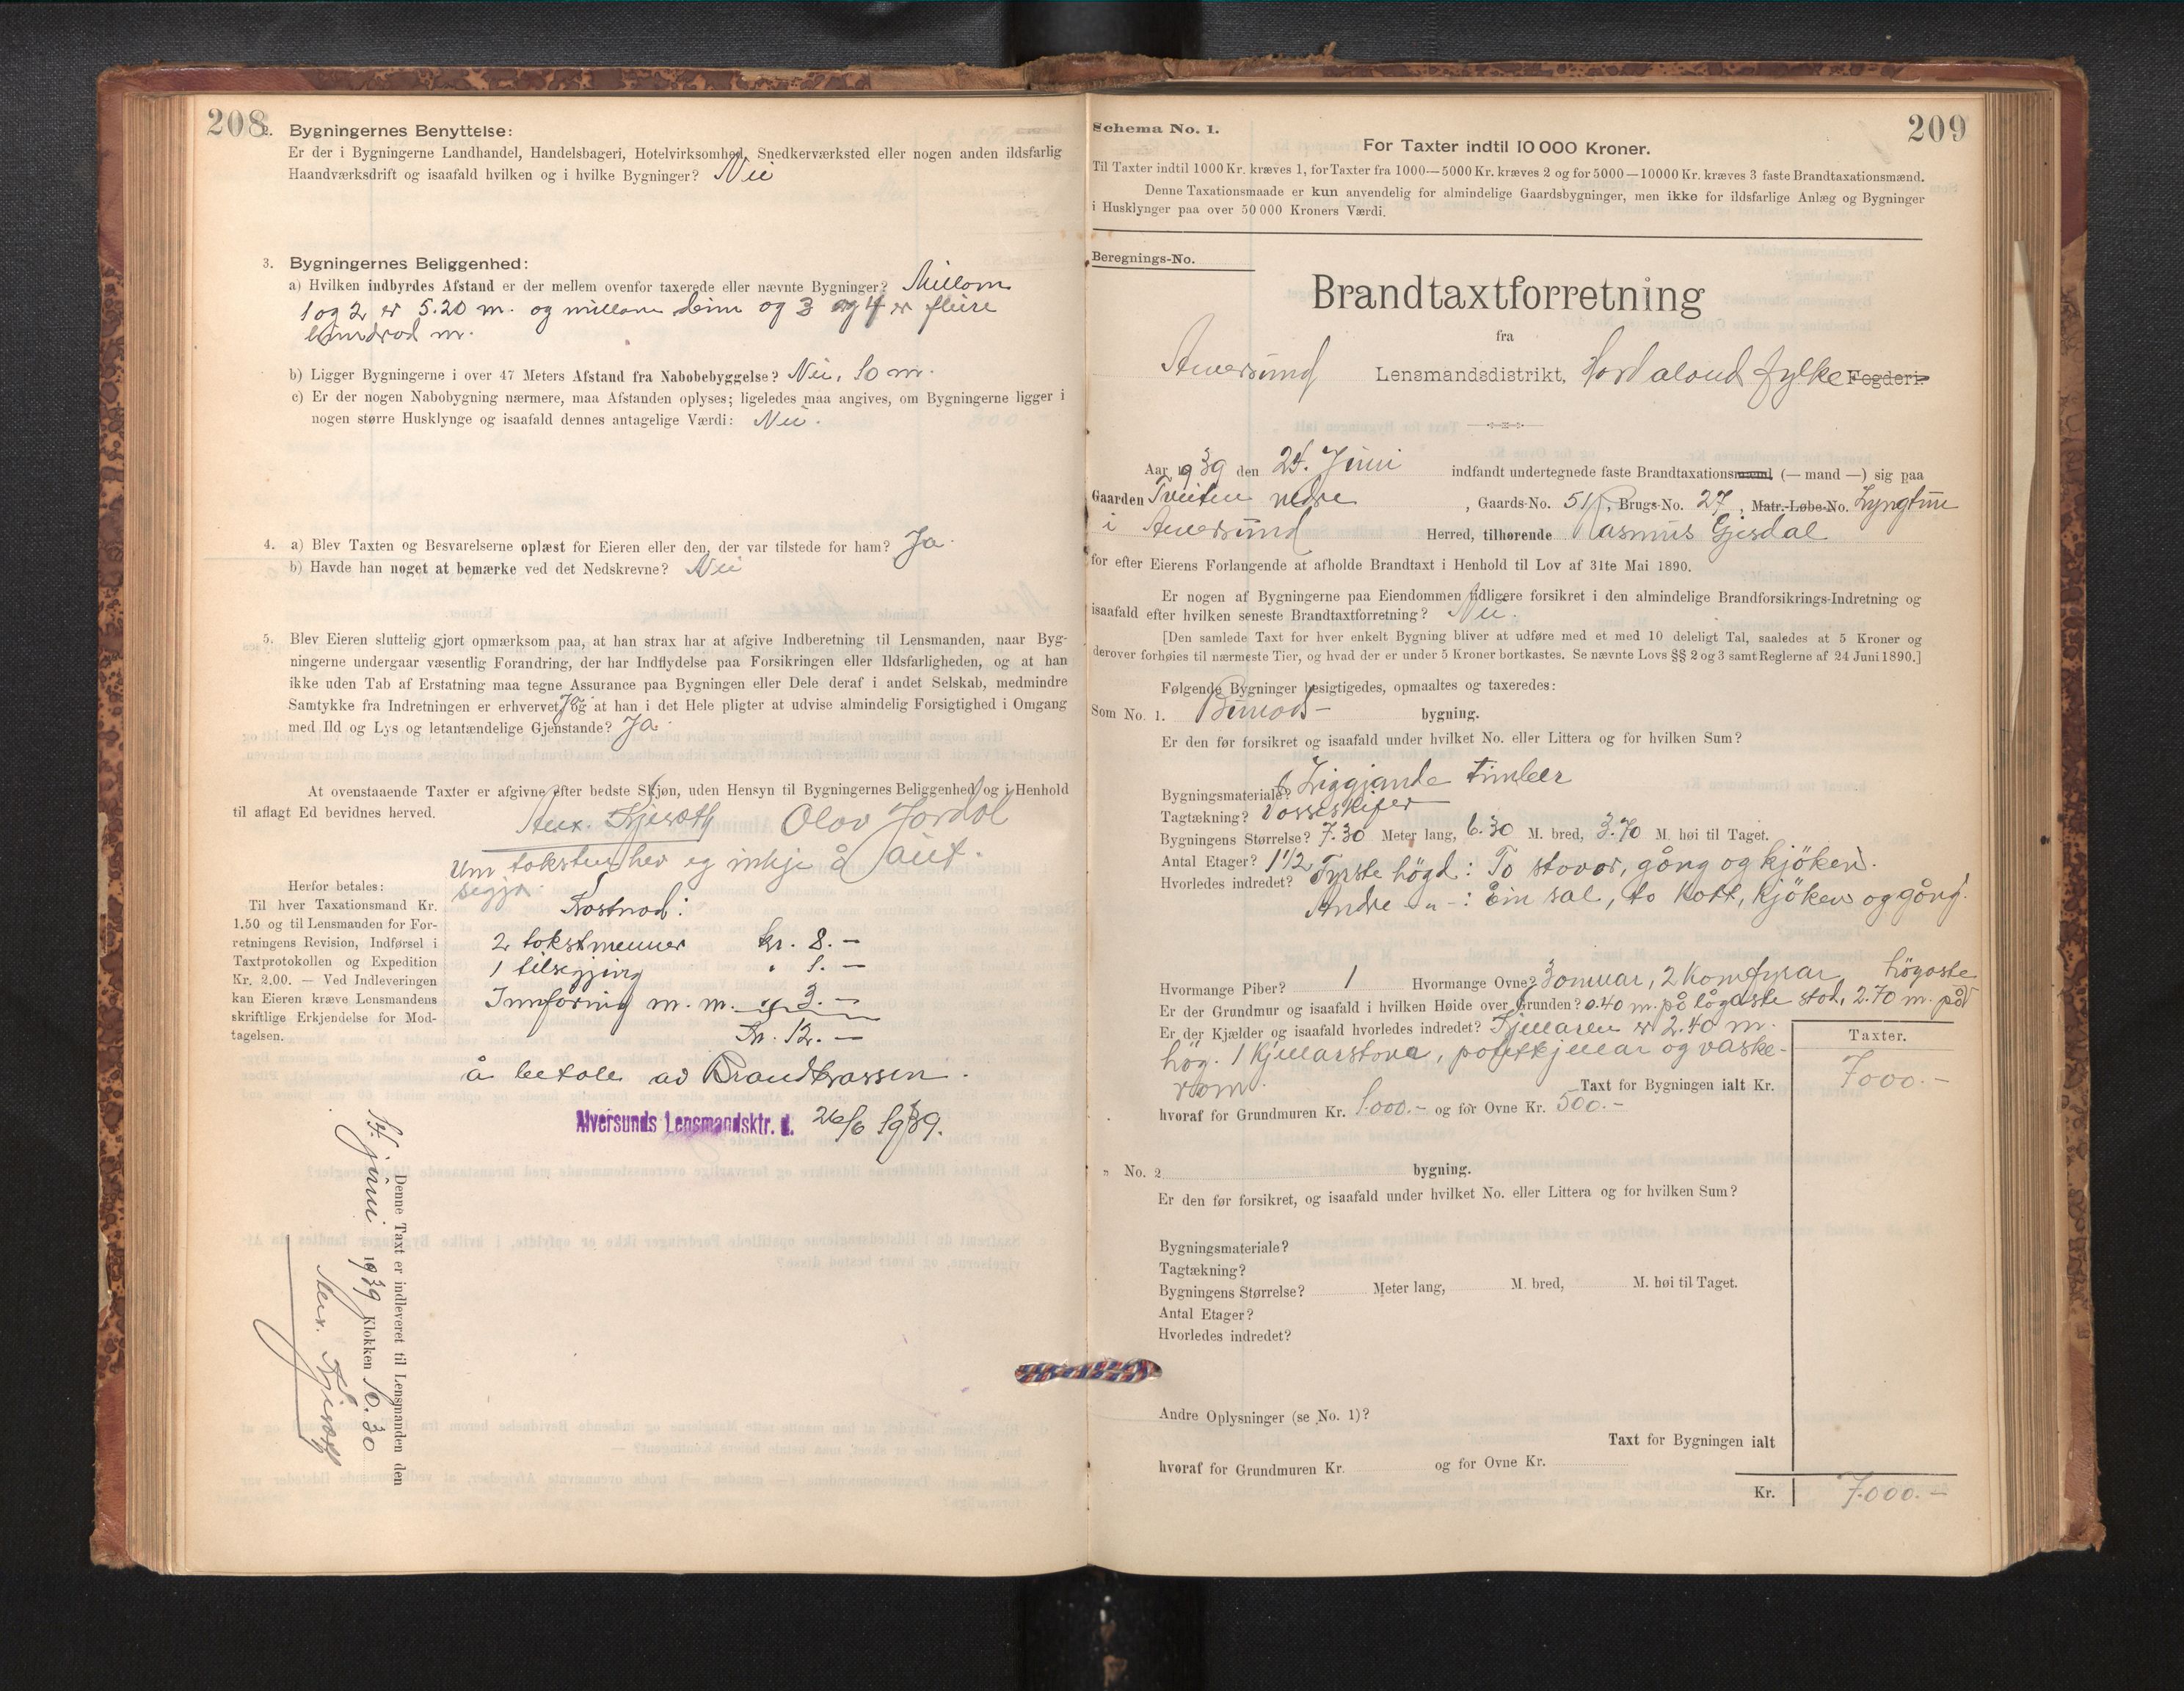 208
2. Bygningernes Benyttelse:
Er der i Bygningerne Landhandel, Handelsbageri, Hotelvirksomhed, Snedkerværksted eller nogen anden ildsfarlig
Haandværksdrift og isaafald hvilken og i hvilke Bygninger? Nei
3. Bygningernes Beliggenhed:
a) Hvilken indbyrdes Afstand er der mellem ovenfor taxerede eller nævnte Bygninger? Millom
1 og 2 er 5.20 m. og millom deim og 3 og 4 er fleire
hundrad m.
b) Ligger Bygningerne i over 47 Meters Afstand fra Nabobebyggelse? Nei, 10 m.
c) Er der nogen Nabobygning nærmere, maa Afstanden oplyses; ligeledes maa angives, om Bygningerne ligger i
nogen større Husklynge og isaafald dennes antagelige Værdi: Nei.
4. a) Blev Taxten og Besvarelserne oplæst for Eieren eller den, der var tilstede for ham? Ja.
b) Havde han noget at bemærke ved det Nedskrevne? Nei
5. Blev Eieren sluttelig gjort opmærksom paa, at han strax har at afgive Indberetning til Lensmanden, naar Byg-
ningerne undergaar væsentlig Forandring, der har Indflydelse paa Forsikringen eller Ildsfarligheden, og at han
ikke uden Tab af Erstatning maa tegne Assurance paa Bygningen eller Dele deraf i andet Selskab, medmindre
Samtykke fra Indretningen er erhvervet, og at han i det Hele pligter at udvise almindelig Forsigtighed i Omgang
med Ild og Lys og letantændelige Gjenstande? Ja
At ovenstaaende Taxter er afgivne efter bedste Skjøn, uden Hensyn til Bygningernes Beliggenhed, og i Henhold
til aflagt Ed bevidnes herved.
Olav Jordal
Um taksten hev eg inkje å
segja.
Herfor betales:
Til hver Taxationsmand Kr.
1.50 og til Lensmanden for For-
retningens Revision, Indførsel i
Taxtprotokollen og Expedition
Kr. 2.00. — Ved Indleveringen
kan Eieren kræve Lensmandens
skriftlige Erkjendelse for Mod-
tagelsen.
Kostnad:
2 takstmenner kr. 8.—
1 tilsegjing " 1.—
Innföring m. m. " 3.—
Kr. 12.—
å betale av Brandkassen.
Alversunds Lensmandsktr. d. 26/6 1939.
Denne Taxt er indleveret til Lensmanden den
juni 1939 Klokken 10.30
209
Schema No. 1.
For Taxter indtil 10 000 Kroner.
Til Taxter indtil 1000 Kr. kræves 1, for Taxter fra 1000—5000 Kr. kræves 2 og for 5000—10000 Kr. kræves 3 faste Brandtaxationsmænd.
Denne Taxationsmaade er kun anvendelig for almindelige Gaardsbygninger, men ikke for ildsfarlige Anlæg og Bygninger
i Husklynger paa over 50 000 Kroners Værdi.
Beregnings-No.
Brandtaxtforretning
fra
Alversund Lensmandsdistrikt, Hordaland fylke Fogderi.
Aar 1939 den 24. Juni indfandt undertegnede faste Brandtaxationsmænd (— mand —) sig paa
Gaarden Tveiten nedre, Gaards-No. 51, Brugs-No. 27, Matr.-Løbe-No. Lyngtun
i Alversund Herred, tilhørende Rasmus Gjesdal
for efter Eierens Forlangende at afholde Brandtaxt i Henhold til Lov af 31te Mai 1890.
Er nogen af Bygningerne paa Eiendommen tidligere forsikret i den almindelige Brandforsikrings-Indretning og
isaafald efter hvilken seneste Brandtaxtforretning? Nei.
[Den samlede Taxt for hver enkelt Bygning bliver at udføre med et med 10 deleligt Tal, saaledes at 5 Kroner og
derover forhøies til nærmeste Tier, og hvad der er under 5 Kroner bortkastes. Se nævnte Lovs §§ 2 og 3 samt Reglerne af 24 Juni 1890.]
Følgende Bygninger besigtigedes, opmaaltes og taxeredes:
Som No. 1. Bunads- bygning.
Er den før forsikret og isaafald under hvilket No. eller Littera og for hvilken Sum?
Bygningsmateriale? Liggjande timber
Tagtækning? Vosseskifer
Bygningens Størrelse? 7.30 Meter lang, 6.30 M. bred, 3.70 M. høi til Taget.
Antal Etager? 1 1/2
Hvorledes indredet? Fyrste högd: To stovor, gång og kjöken.
Andre - " - : Ein sal, to kott, kjöken og gång.
Hvormange Piber? 1 Hvormange Ovne? 3 omnar, 2 komfyrar högaste
Er der Grundmur og isaafald i hvilken Høide over Grunden? 0.40 m. på lågaste stad, 2.70 m. på
Er der Kjælder og isaafald hvorledes indredet? Kjellaren er 2.40 m.
hög. 1 kjellarstova, potetkjellar og vaske-
rom.
Taxter.
Taxt for Bygningen ialt Kr. 7000.—
hvoraf for Grundmuren Kr. 1.000.— og for Ovne Kr. 500.—
" No. 2 bygning.
Er den før forsikret, og isaafald under hvilket No. eller Littera og for hvilken Sum?
Bygningsmateriale?
Tagtækning?
Bygningens Størrelse? Meter lang, M. bred, M. høi til Taget.
Antal Etager?
Hvorledes indredet?
Andre Oplysninger (se No. 1)?
Taxt for Bygningen ialt
hvoraf for Grundmuren Kr. og for Ovne Kr.
Kr. 7.000.—